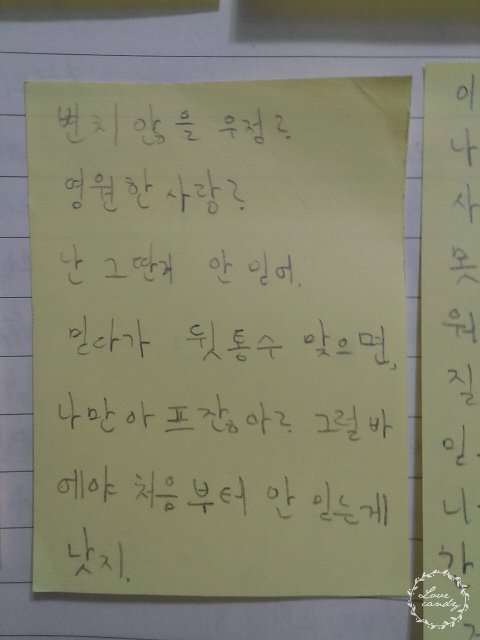 변치 않을 우정?
영원한 사랑?
난 그딴거 안 믿어.
믿다가 뒷통수 맞으면,
나만 아프잖아? 그럴바
에야 처음부터 안 믿는게
낫지.
이
나
사
못
워
질
믿
니
Love
candy